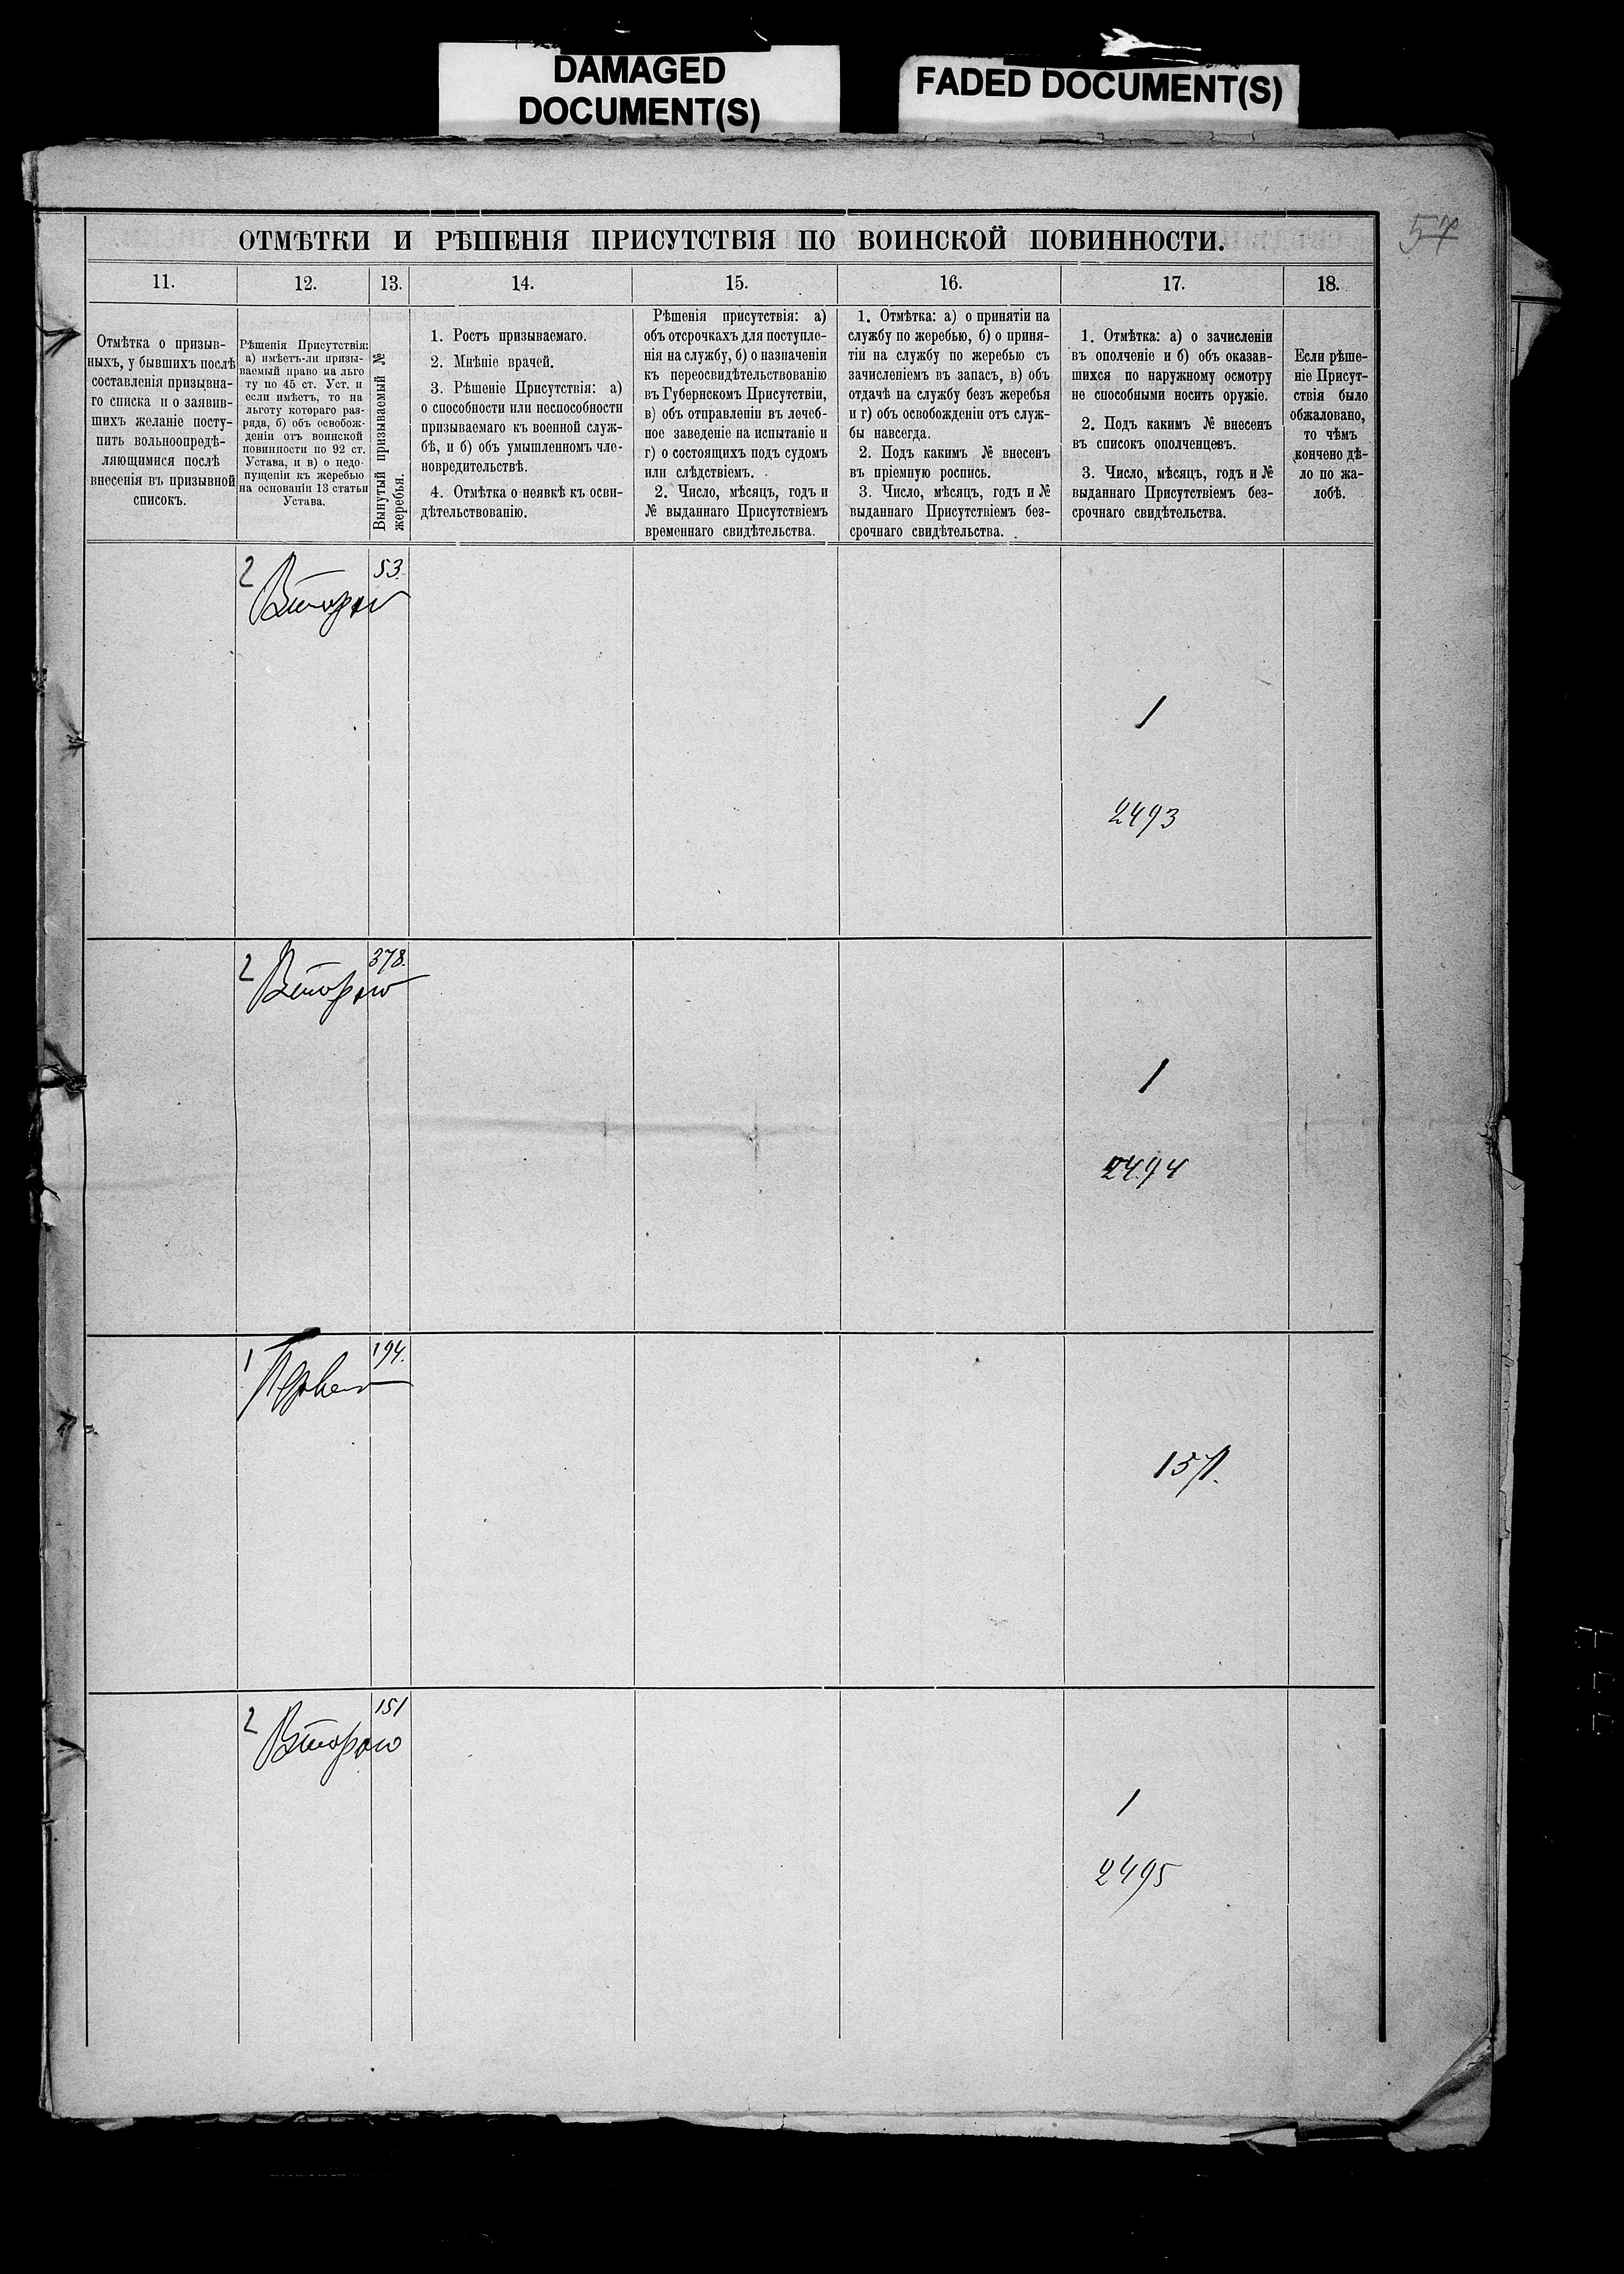 DAMAGED
DOCUMENT(S)
FADED DOCUMENT(S)
57
ОТМѢТКИ И РѢШЕНІЯ ПРИСУТСТВІЯ ПО ВОИНСКОЙ ПОВИННОСТИ.
11.
12.
13.
14.
15.
16.
17.
18.
Отмѣтка о призыв-
ныхъ, у бывшихъ послѣ
составленія призывна-
го списка и о заявив-
шихъ желаніе посту-
пить вольноопредѣ-
ляющимися послѣ
внесенія въ призывной
списокъ.
Рѣшенія Присутствія:
а) имѣетъ-ли призы-
ваемый право на льго
ту по 45 ст. Уст. и
если имѣетъ, то на
льготу котораго раз-
ряда, б) объ освобож-
деніи отъ воинской
повинности по 92 ст.
Устава, и в) о недо-
пущеніи къ жеребью
на основаніи 13 статьи
Устава.
Вынутый призываемый №
жеребья.
1. Ростъ призываемаго.
2. Мнѣніе врачей.
3. Рѣшеніе Присутствія: а)
о способности или неспособности
призываемаго къ военной служ-
бѣ, и б) объ умышленномъ чле-
новредительствѣ.
4. Отмѣтка о неявкѣ къ осви-
дѣтельствованію.
Рѣшенія присутствія: а)
объ отсрочкахъ для поступле-
нія на службу, б) о назначеніи
къ переосвидѣтельствованію
въ Губернскомъ Присутствіи,
в) объ отправленіи въ лечеб-
ное заведеніе на испытаніе и
г) о состоящихъ подъ судомъ
или слѣдствіемъ.
2. Число, мѣсяцъ, годъ и
№ выданнаго Присутствіемъ
временнаго свидѣтельства.
1. Отмѣтка: а) о принятіи на
службу по жеребью, б) о приня-
тіи на службу по жеребью съ
зачисленіемъ въ запасъ, в) объ
отдачѣ на службу безъ жеребья
и г) объ освобожденіи отъ служ-
бы навсегда.
2. Подъ какимъ № внесенъ
въ пріемную роспись.
3. Число, мѣсяцъ, годъ и №
выданнаго Присутствіемъ без-
срочнаго свидѣтельства.
1. Отмѣтка: а) о зачисленіи
въ ополченіе и б) объ оказав-
шихся по наружному осмотру
не способными носить оружіе.
2. Подъ какимъ № внесенъ
въ списокъ ополченцевъ.
3. Число, мѣсяцъ, годъ и №
выданнаго Присутствіемъ без-
срочнаго свидѣтельства.
Если рѣше-
ніе Присут-
ствія было
обжаловано,
то чѣмъ
кончено дѣ-
ло по жа-
лобѣ.
2
53.
Второй
1
2493
2
378.
Второго
1
2494
1
194.
2
151
Второго
1
2495